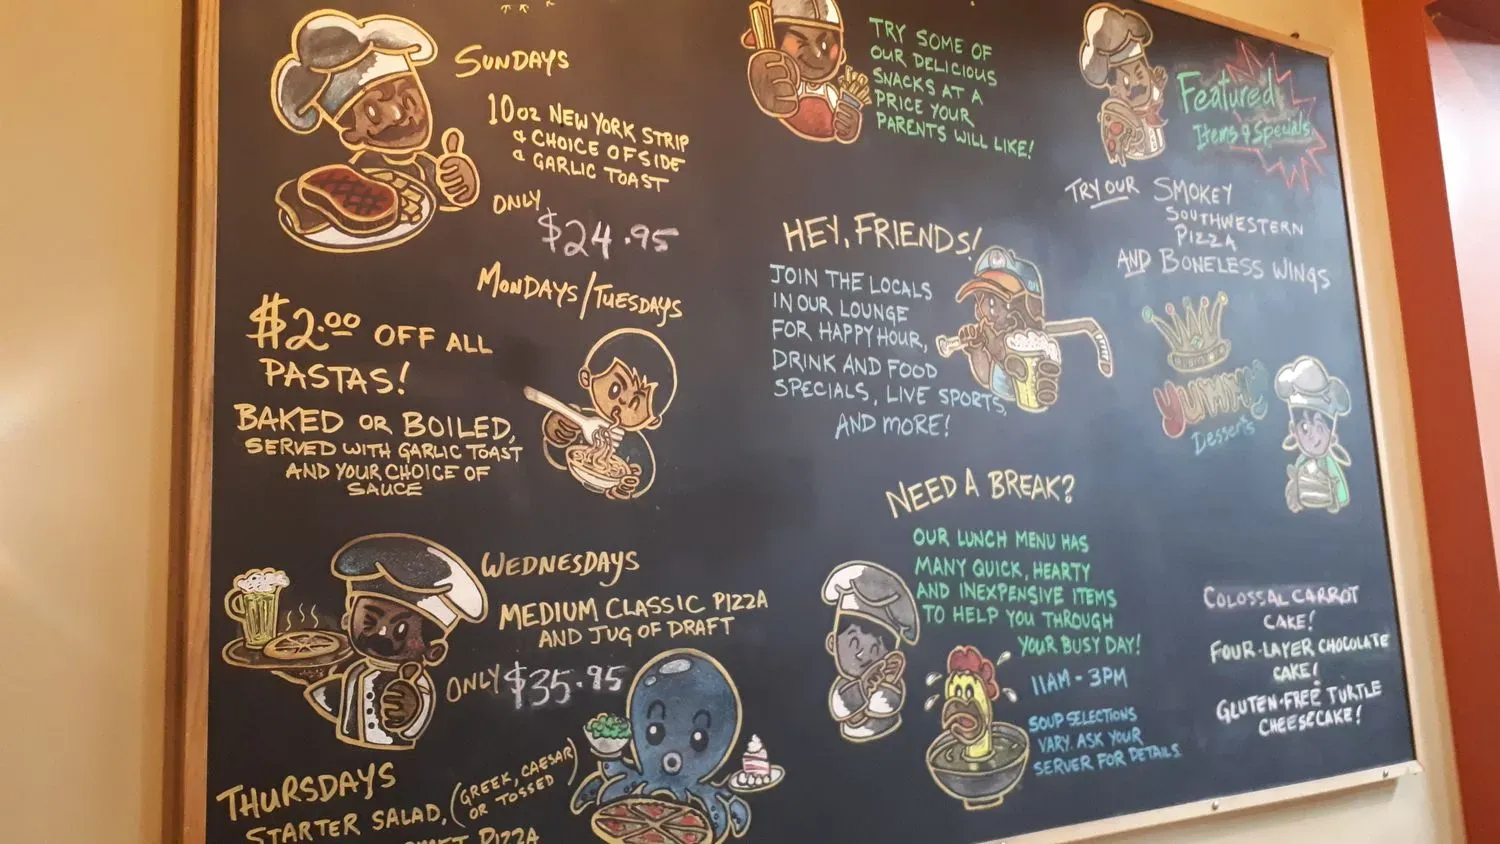 SUNDAYS
10oz NEW YORK STRIP
& CHOICE OF SIDE
& GARLIC TOAST
ONLY
$24.95
MONDAYS/TUESDAYS
$2.00 OFF ALL
PASTAS!
BAKED OR BOILED,
SERVED WITH GARLIC TOAST
AND YOUR CHOICE OF
SAUCE
WEDNESDAYS
MEDIUM CLASSIC PIZZA
AND JUG OF DRAFT
ONLY $35.95
THURSDAYS
STARTER SALAD, (GREEK, CAESAR
OR TOSSED)
PIZZA
TRY SOME OF
OUR DELICIOUS
SNACKS AT A
PRICE YOUR
PARENTS WILL LIKE!
HEY, FRIENDS!
JOIN THE LOCALS
IN OUR LOUNGE
FOR HAPPY HOUR,
DRINK AND FOOD
SPECIALS, LIVE SPORTS,
AND MORE!
NEED A BREAK?
OUR LUNCH MENU HAS
MANY QUICK, HEARTY
AND INEXPENSIVE ITEMS
TO HELP YOU THROUGH
YOUR BUSY DAY!
11AM - 3PM
SOUP SELECTIONS
VARY. ASK YOUR
SERVER FOR DETAILS.
Featured
Items & Specials
TRY OUR SMOKEY
SOUTHWESTERN
PIZZA
AND BONELESS WINGS
YUMMY!
Desserts
COLOSSAL CARROT
CAKE!
FOUR-LAYER CHOCOLATE
CAKE!
GLUTEN-FREE TURTLE
CHEESECAKE!